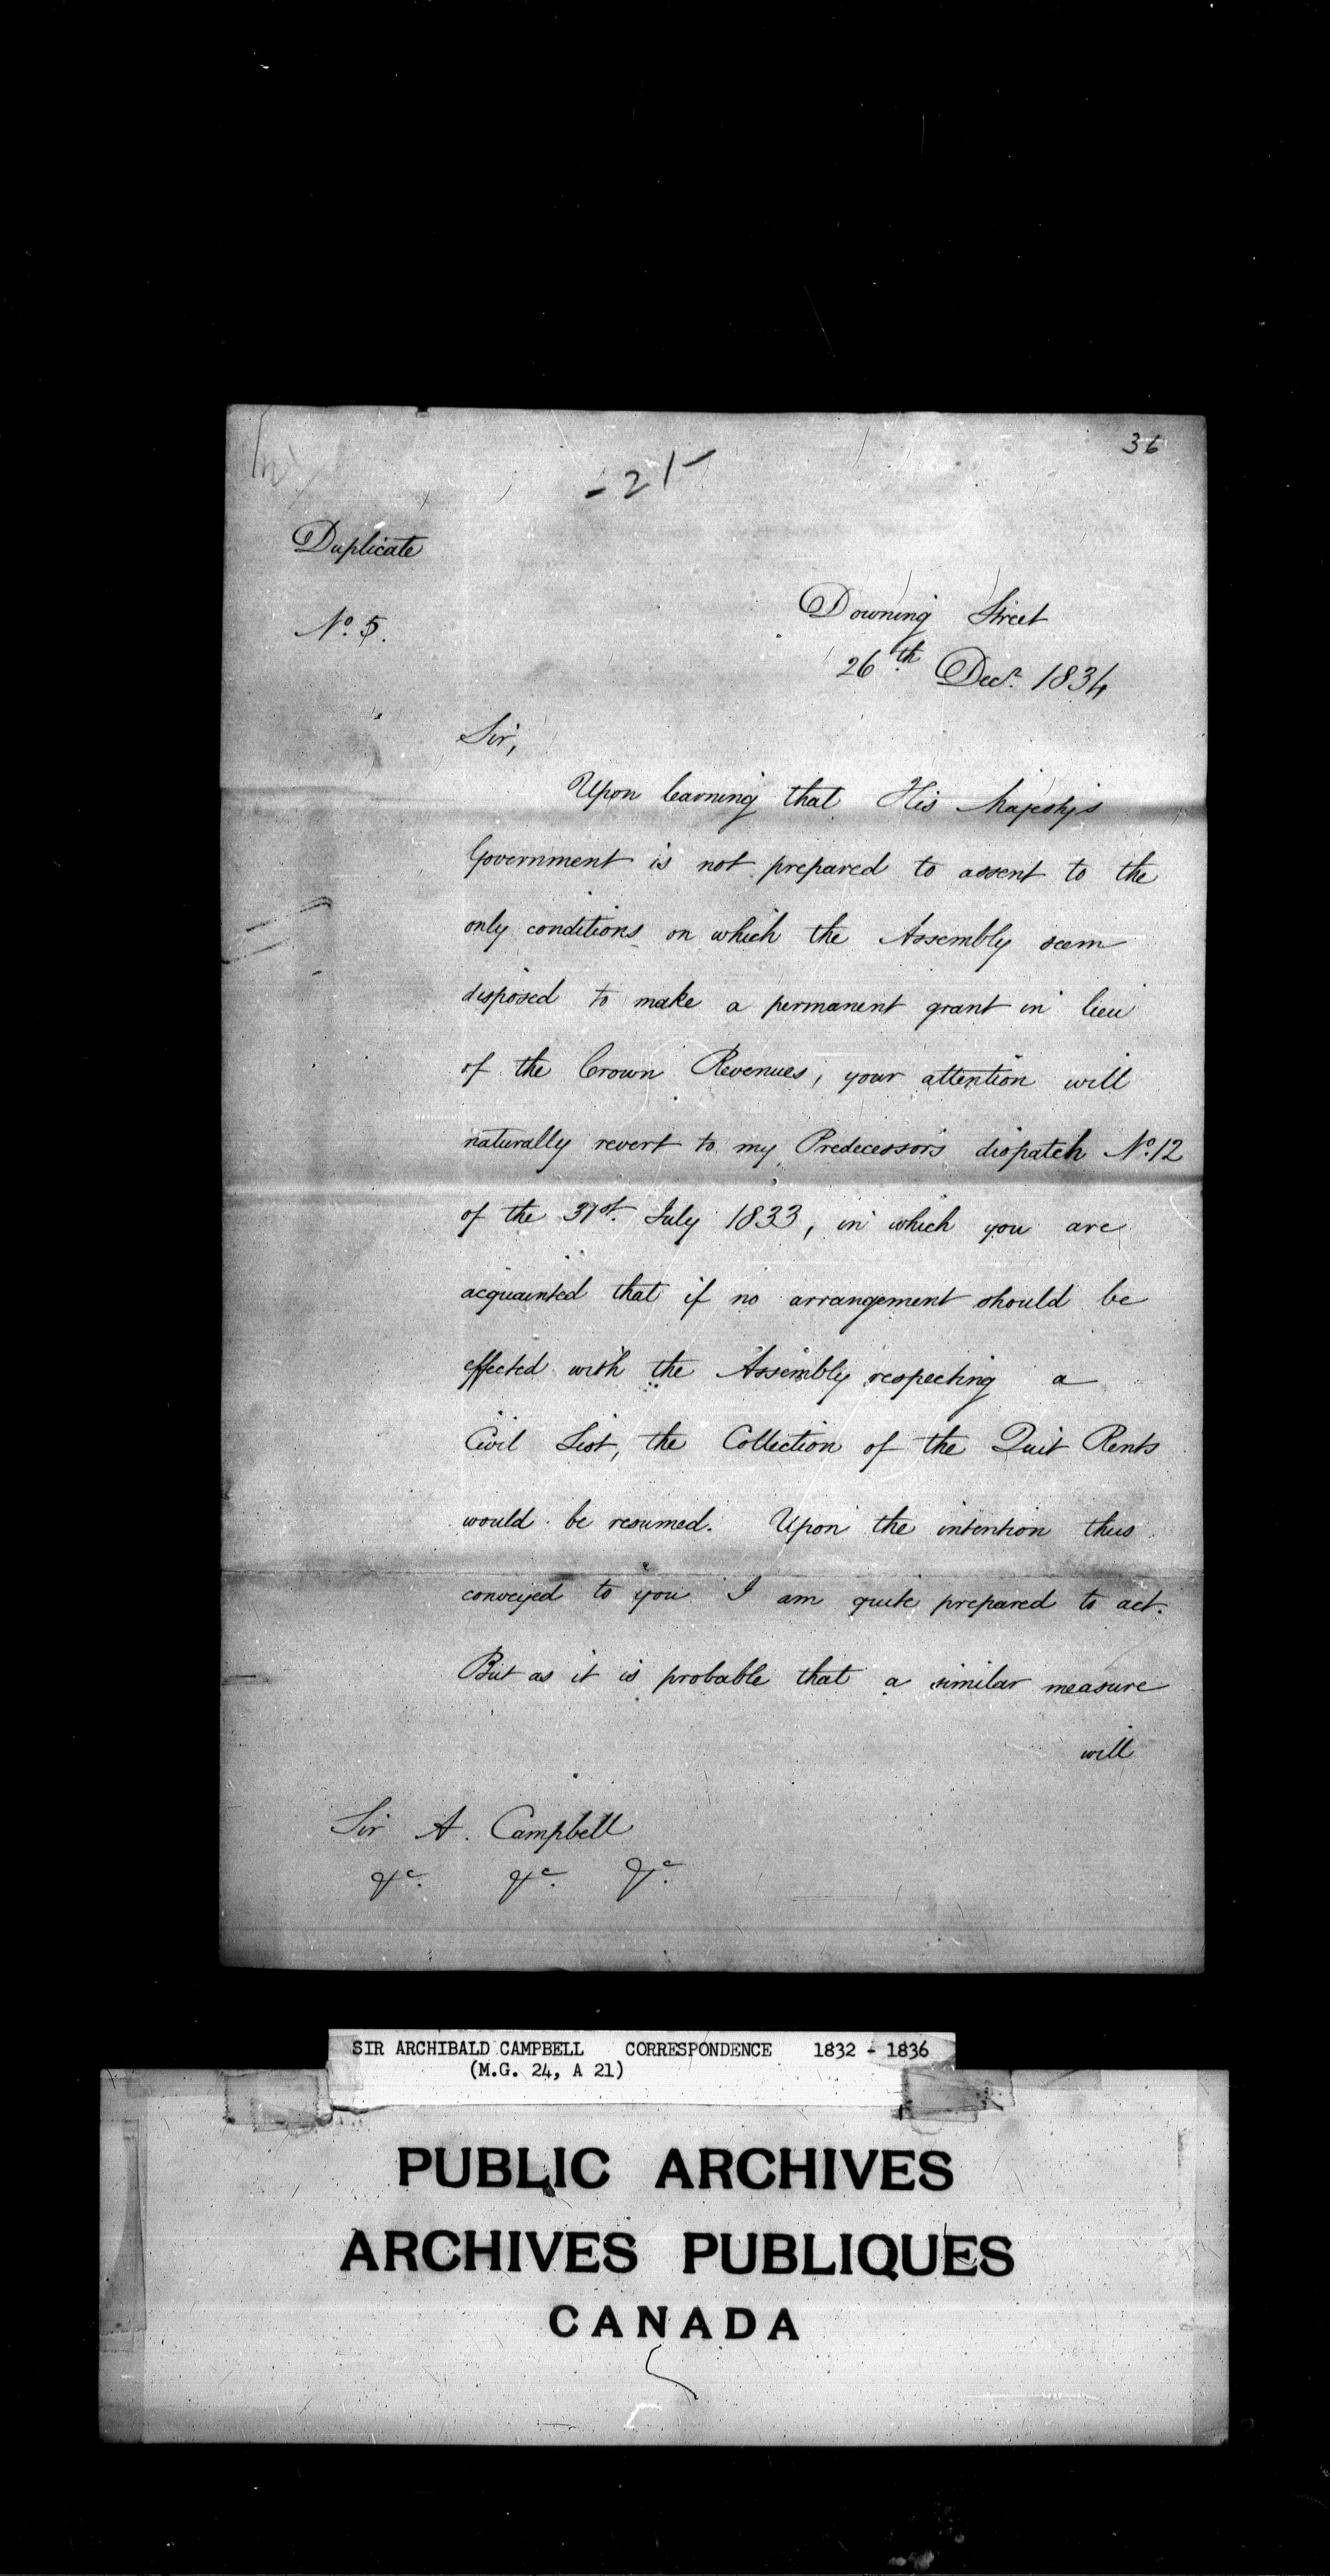 36
- 21 -
Duplicate
No. 5.
Downing Street
26th Decr. 1834
Sir,
Upon learning that His Majesty's
Government is not prepared to assent to the
only conditions on which the Assembly seem
disposed to make a permanent grant in lieu
of the Crown Revenues, your attention will
naturally revert to my Predecessor's dispatch No. 12
of the 31st. July 1833, in which you are
acquainted that if no arrangement should be
effected with the Assembly respecting a
Civil List, the Collection of the Quit Rents
would be resumed. Upon the intention thus
conveyed to you I am quite prepared to act.
But as it is probable that a similar measure
will
Sir A. Campbell
&c. &c. &c.
SIR ARCHIBALD CAMPBELL CORRESPONDENCE 1832 - 1836
(M.G. 24, A 21)
PUBLIC ARCHIVES
ARCHIVES PUBLIQUES
CANADA